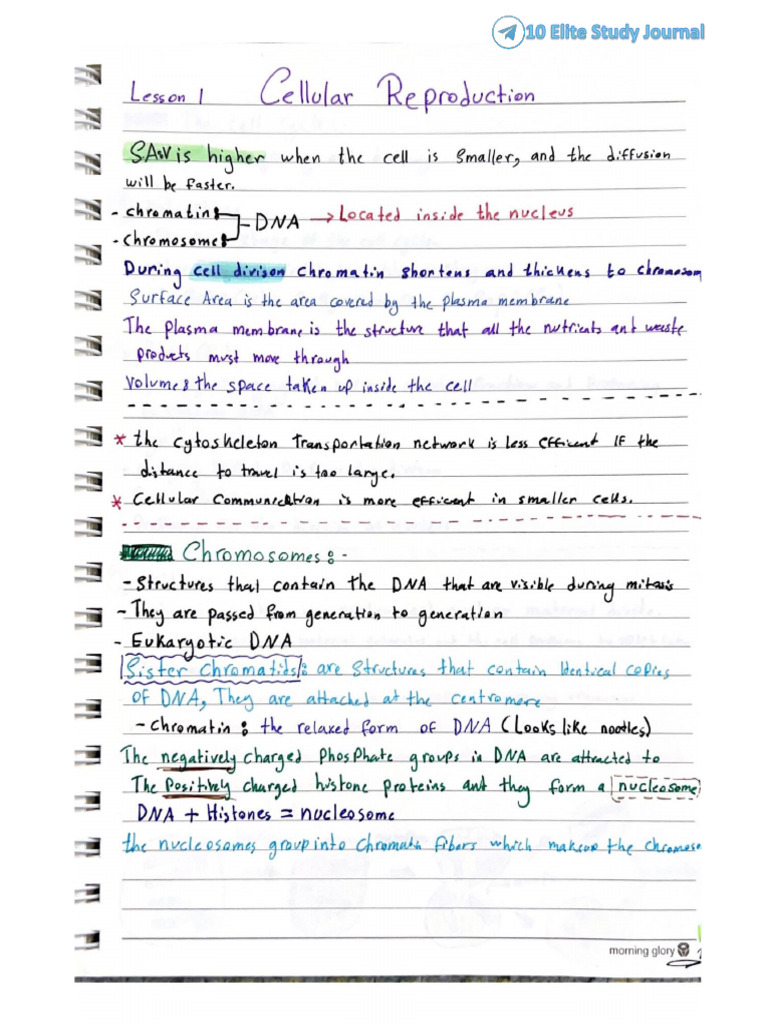 10 Elite Study Journal
Lesson 1 Cellular Reproduction
SA:V is higher when the cell is smaller, and the diffusion
will be faster.
- chromatin:
- DNA → Located inside the nucleus
- chromosome:
During cell divison chromatin shortens and thickens to chromosom
Surface Area is the area covered by the plasma membrane
The plasma membrane is the structure that all the nutrients ant waste
products must move through
Volume: the space taken up inside the cell
* the cytoskeleton Transportation network is less efficent IF the
distance to travel is too large.
* Cellular Communication is more efficent in smaller cells.
Chromosomes: -
- Structures that contain the DNA that are visible during mitosis
- They are passed from generation to generation
- Eukaryotic DNA
Sister chromatids: are structures that contain identical copies
of DNA, They are attached at the centromere
- Chromatin: the relaxed form of DNA (Looks like nootles)
The negatively charged phosphate groups in DNA are attracted to
The Positively charged histone proteins and they form a nucleosome
DNA + Histones = nucleosome
the nucleosomes group into chromatin fibers which makeup the chromoso
morning glory